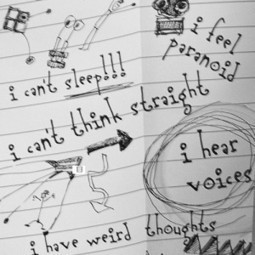 i feel
paranoid
i can't sleep!!!
i can't think straight
i hear
voices
i have weird thoughts